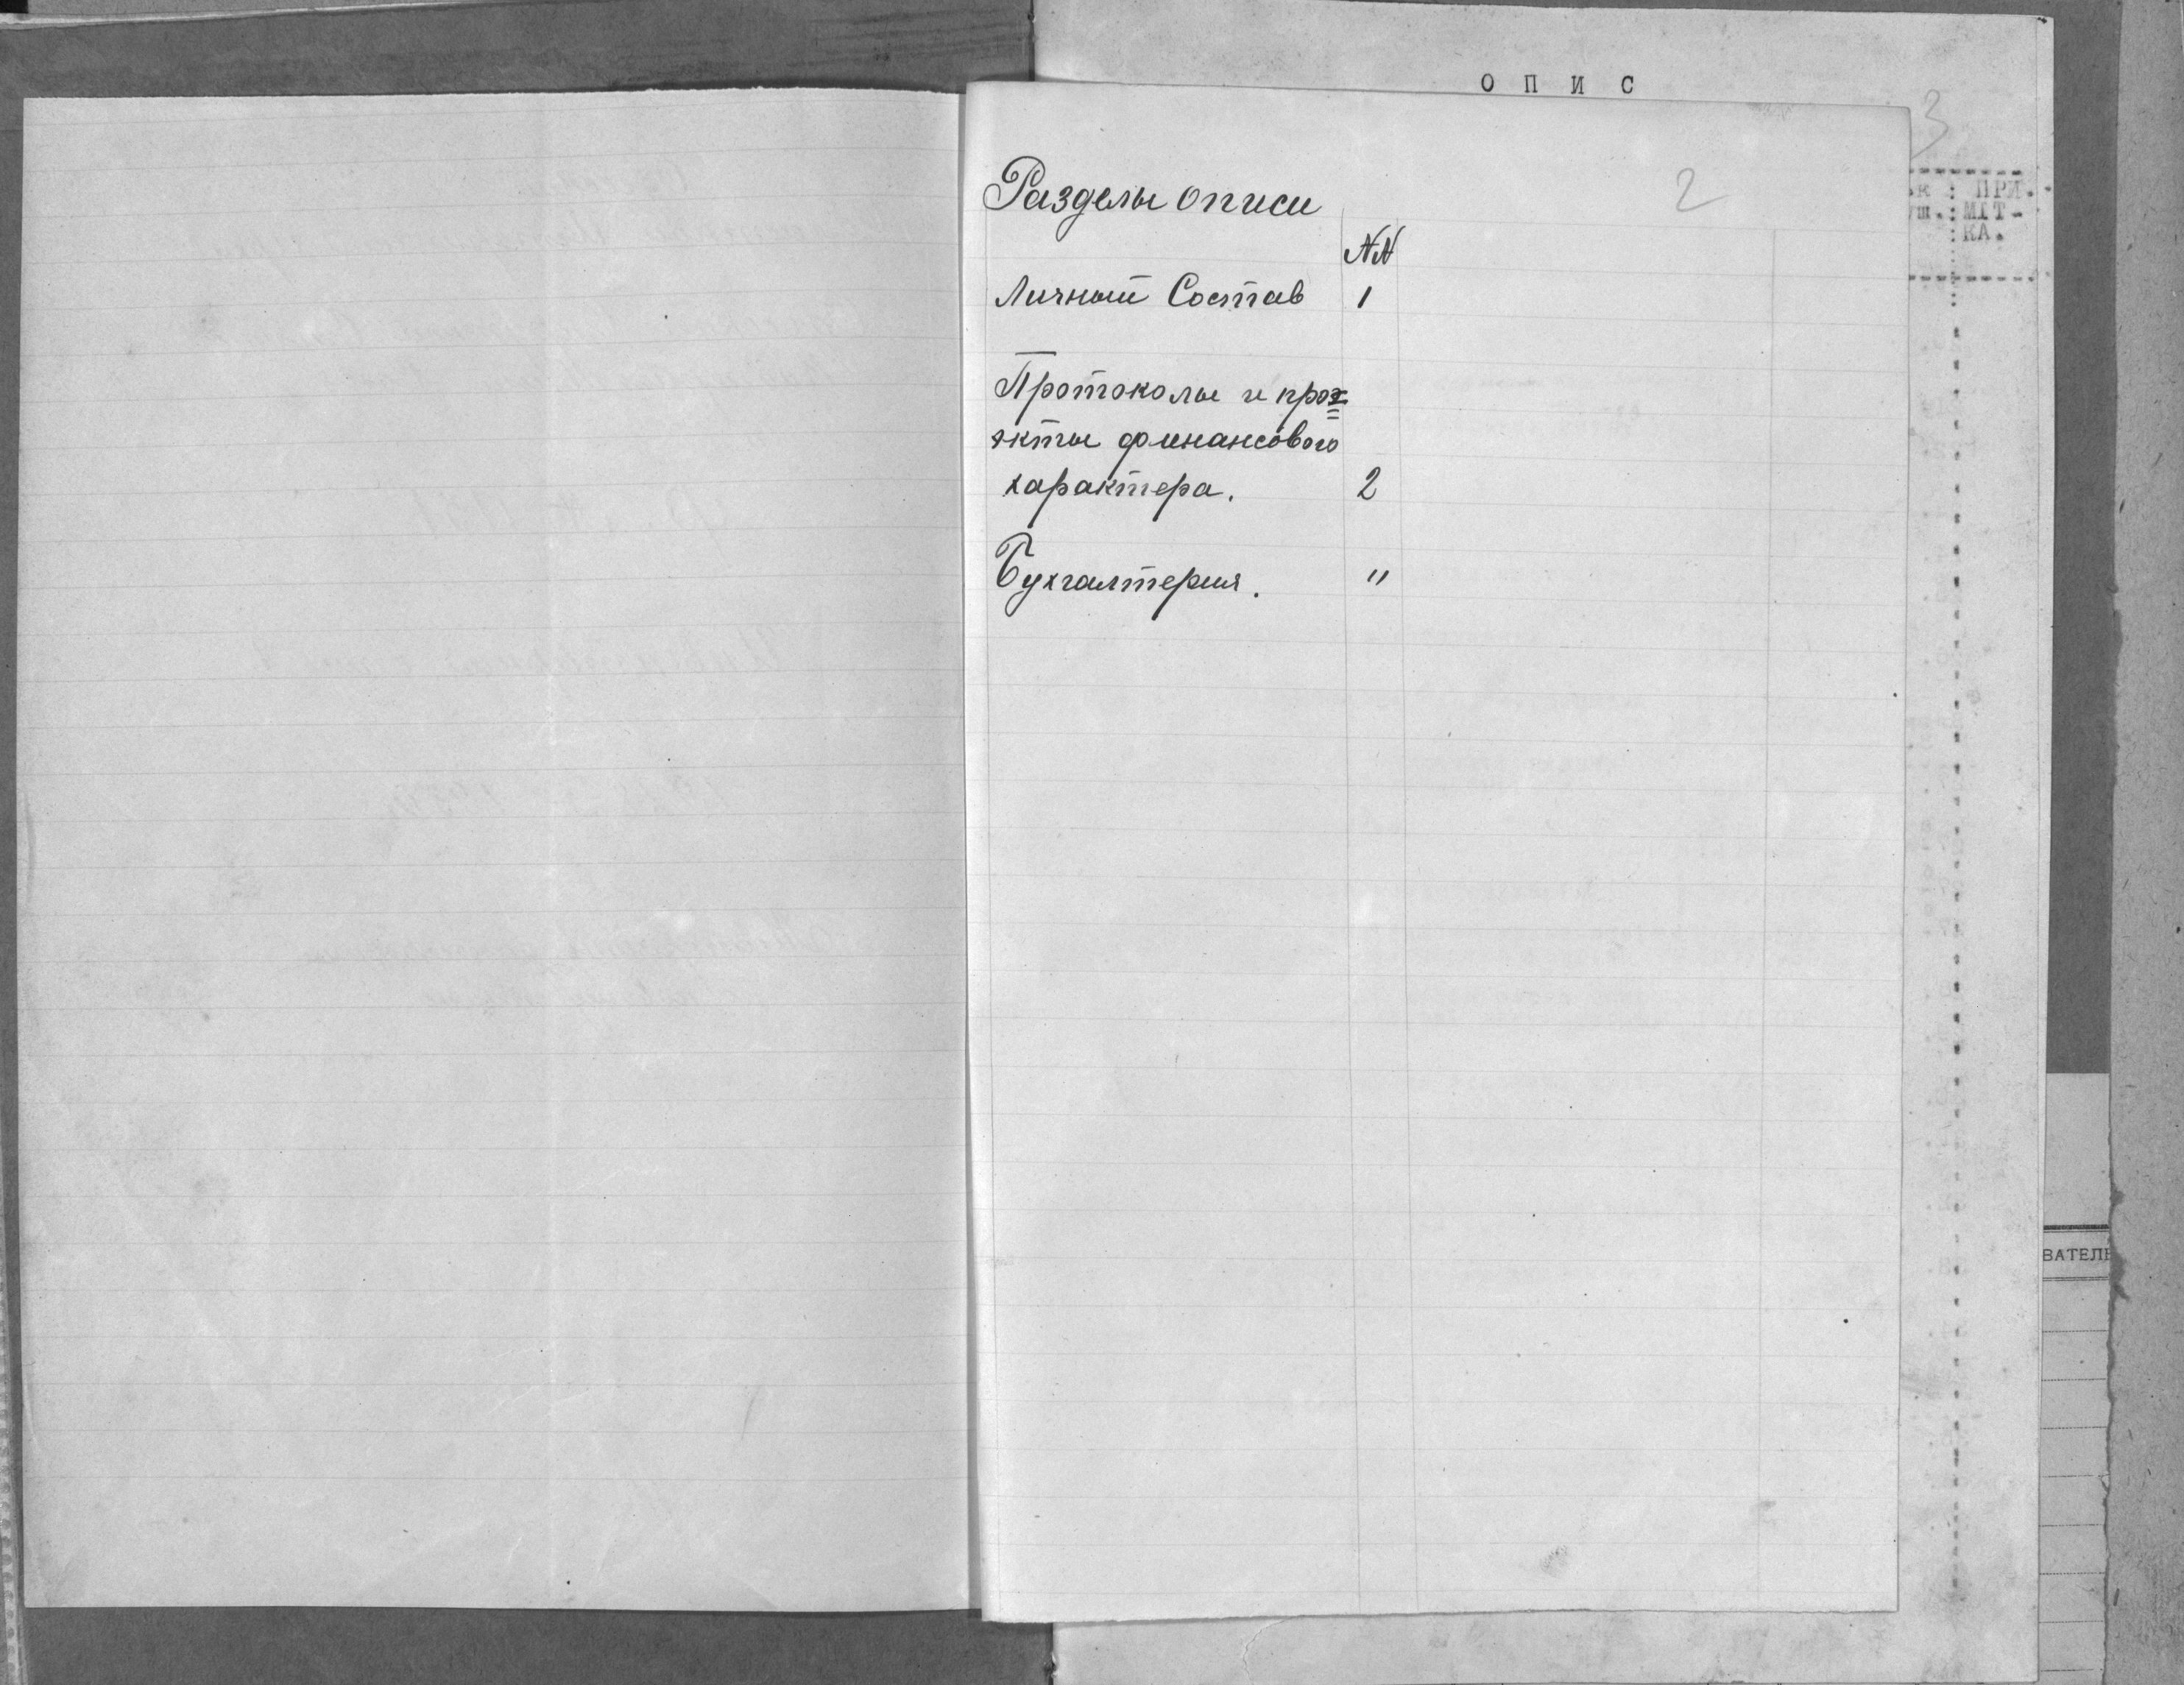 О П И С
3
ПРИ-
МІТ-
КА.
2
Разделы описи
NN
Личный Состав 1
Протоколы и про=
экты финансового
характера. 2
Бухгалтерия. "
ВАТЕЛ